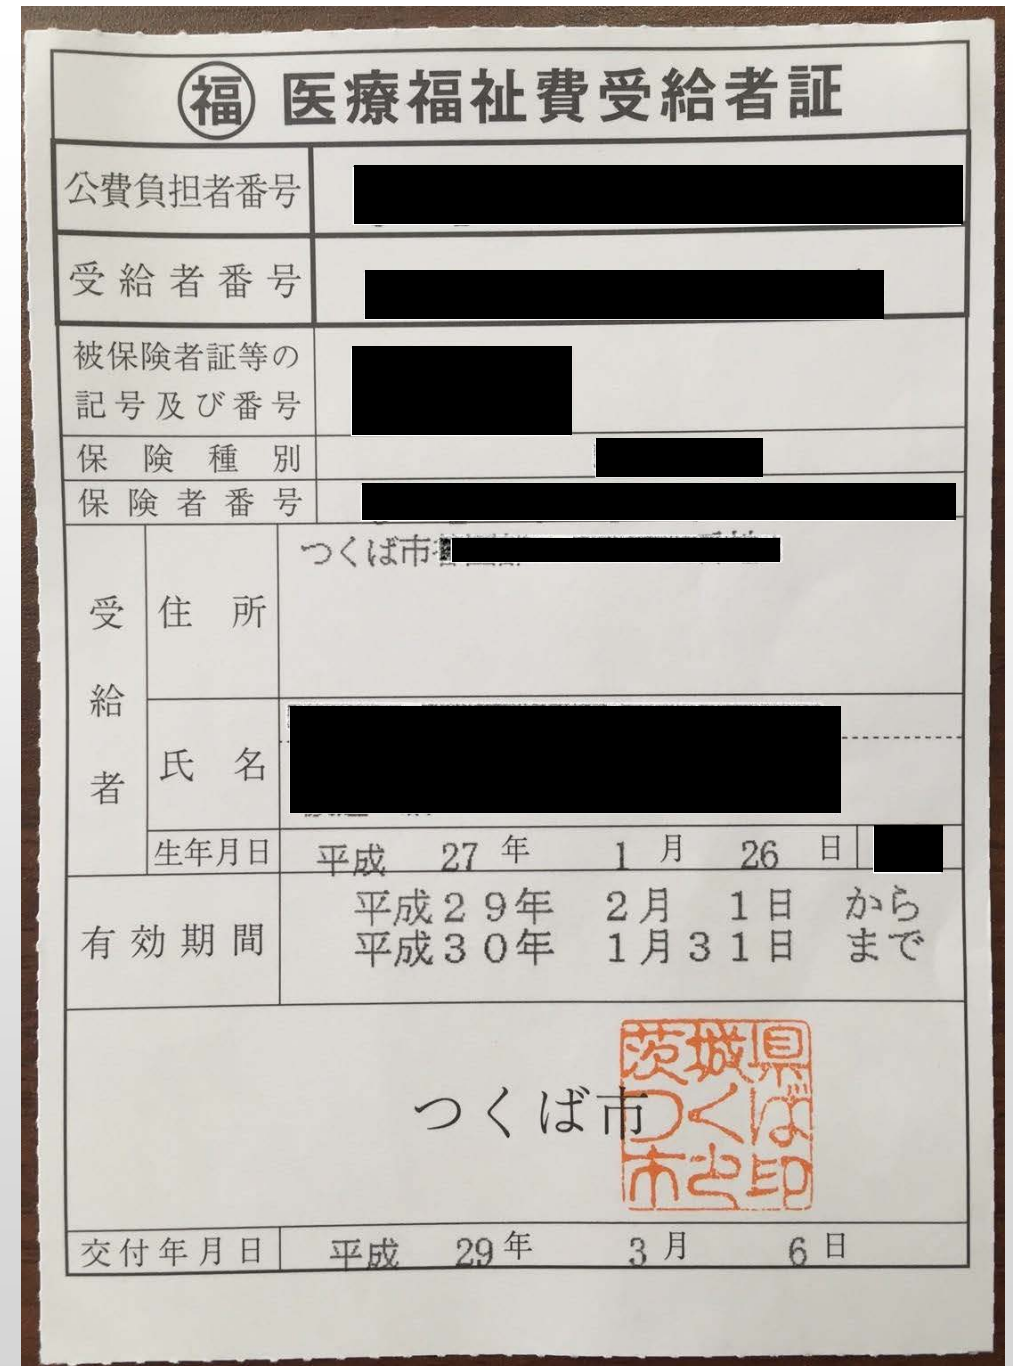 福 医療福祉費受給者証
公費負担者番号
受給者番号
被保険者証等の
記号及び番号
保険種別
保険者番号
受給者
住所 つくば市
氏名
生年月日 平成 27年 1月 26日
有効期間
平成29年 2月 1日 から
平成30年 1月31日 まで
つくば市
茨城県
つくば
市之印
交付年月日 平成 29年 3月 6日